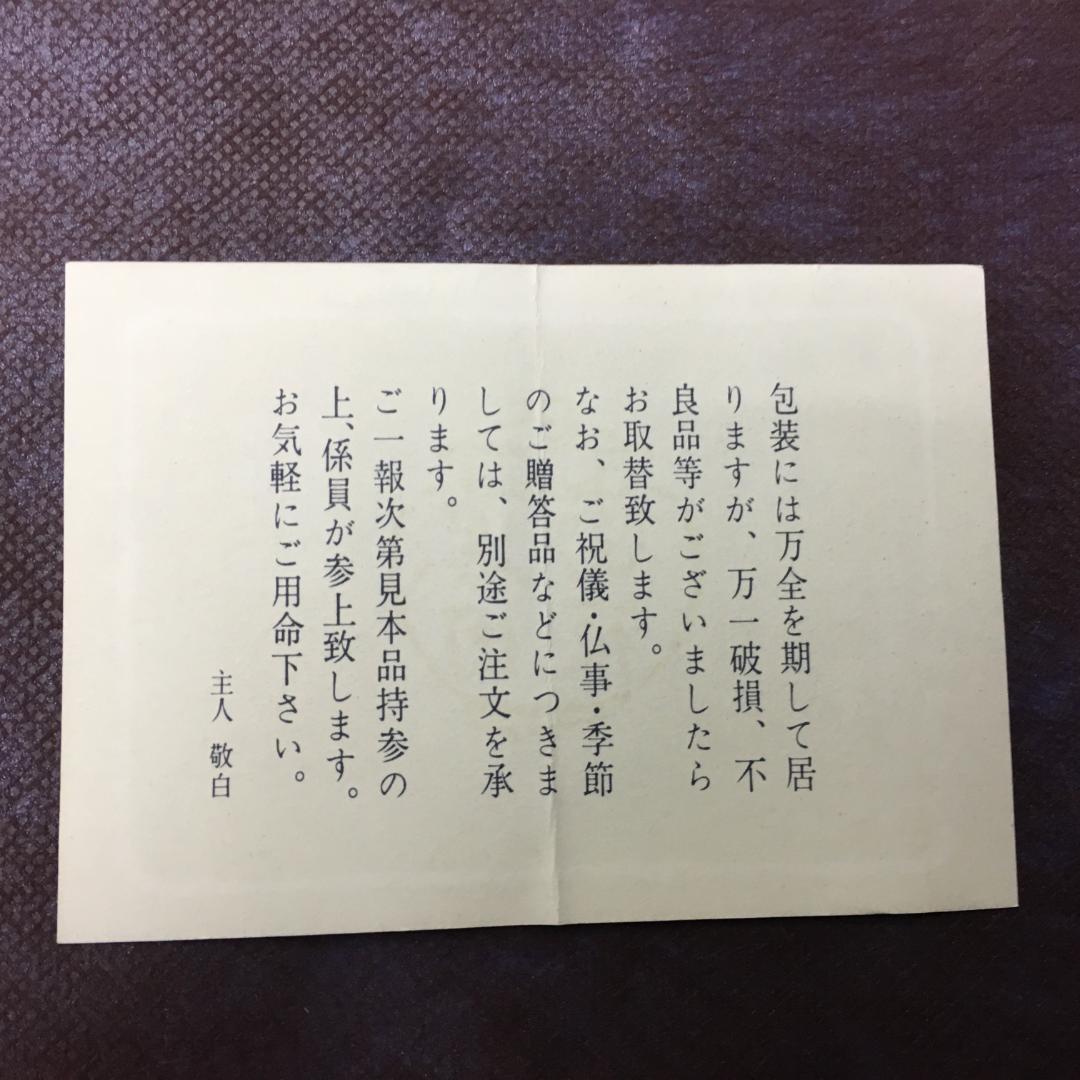 包装には万全を期して居
りますが、万一破損、不
良品等がございましたら
お取替致します。
なお、ご祝儀・仏事・季節
のご贈答品などにつきま
しては、別途ご注文を承
ります。
ご一報次第見本品持参の
上、係員が参上致します。
お気軽にご用命下さい。
主人 敬白